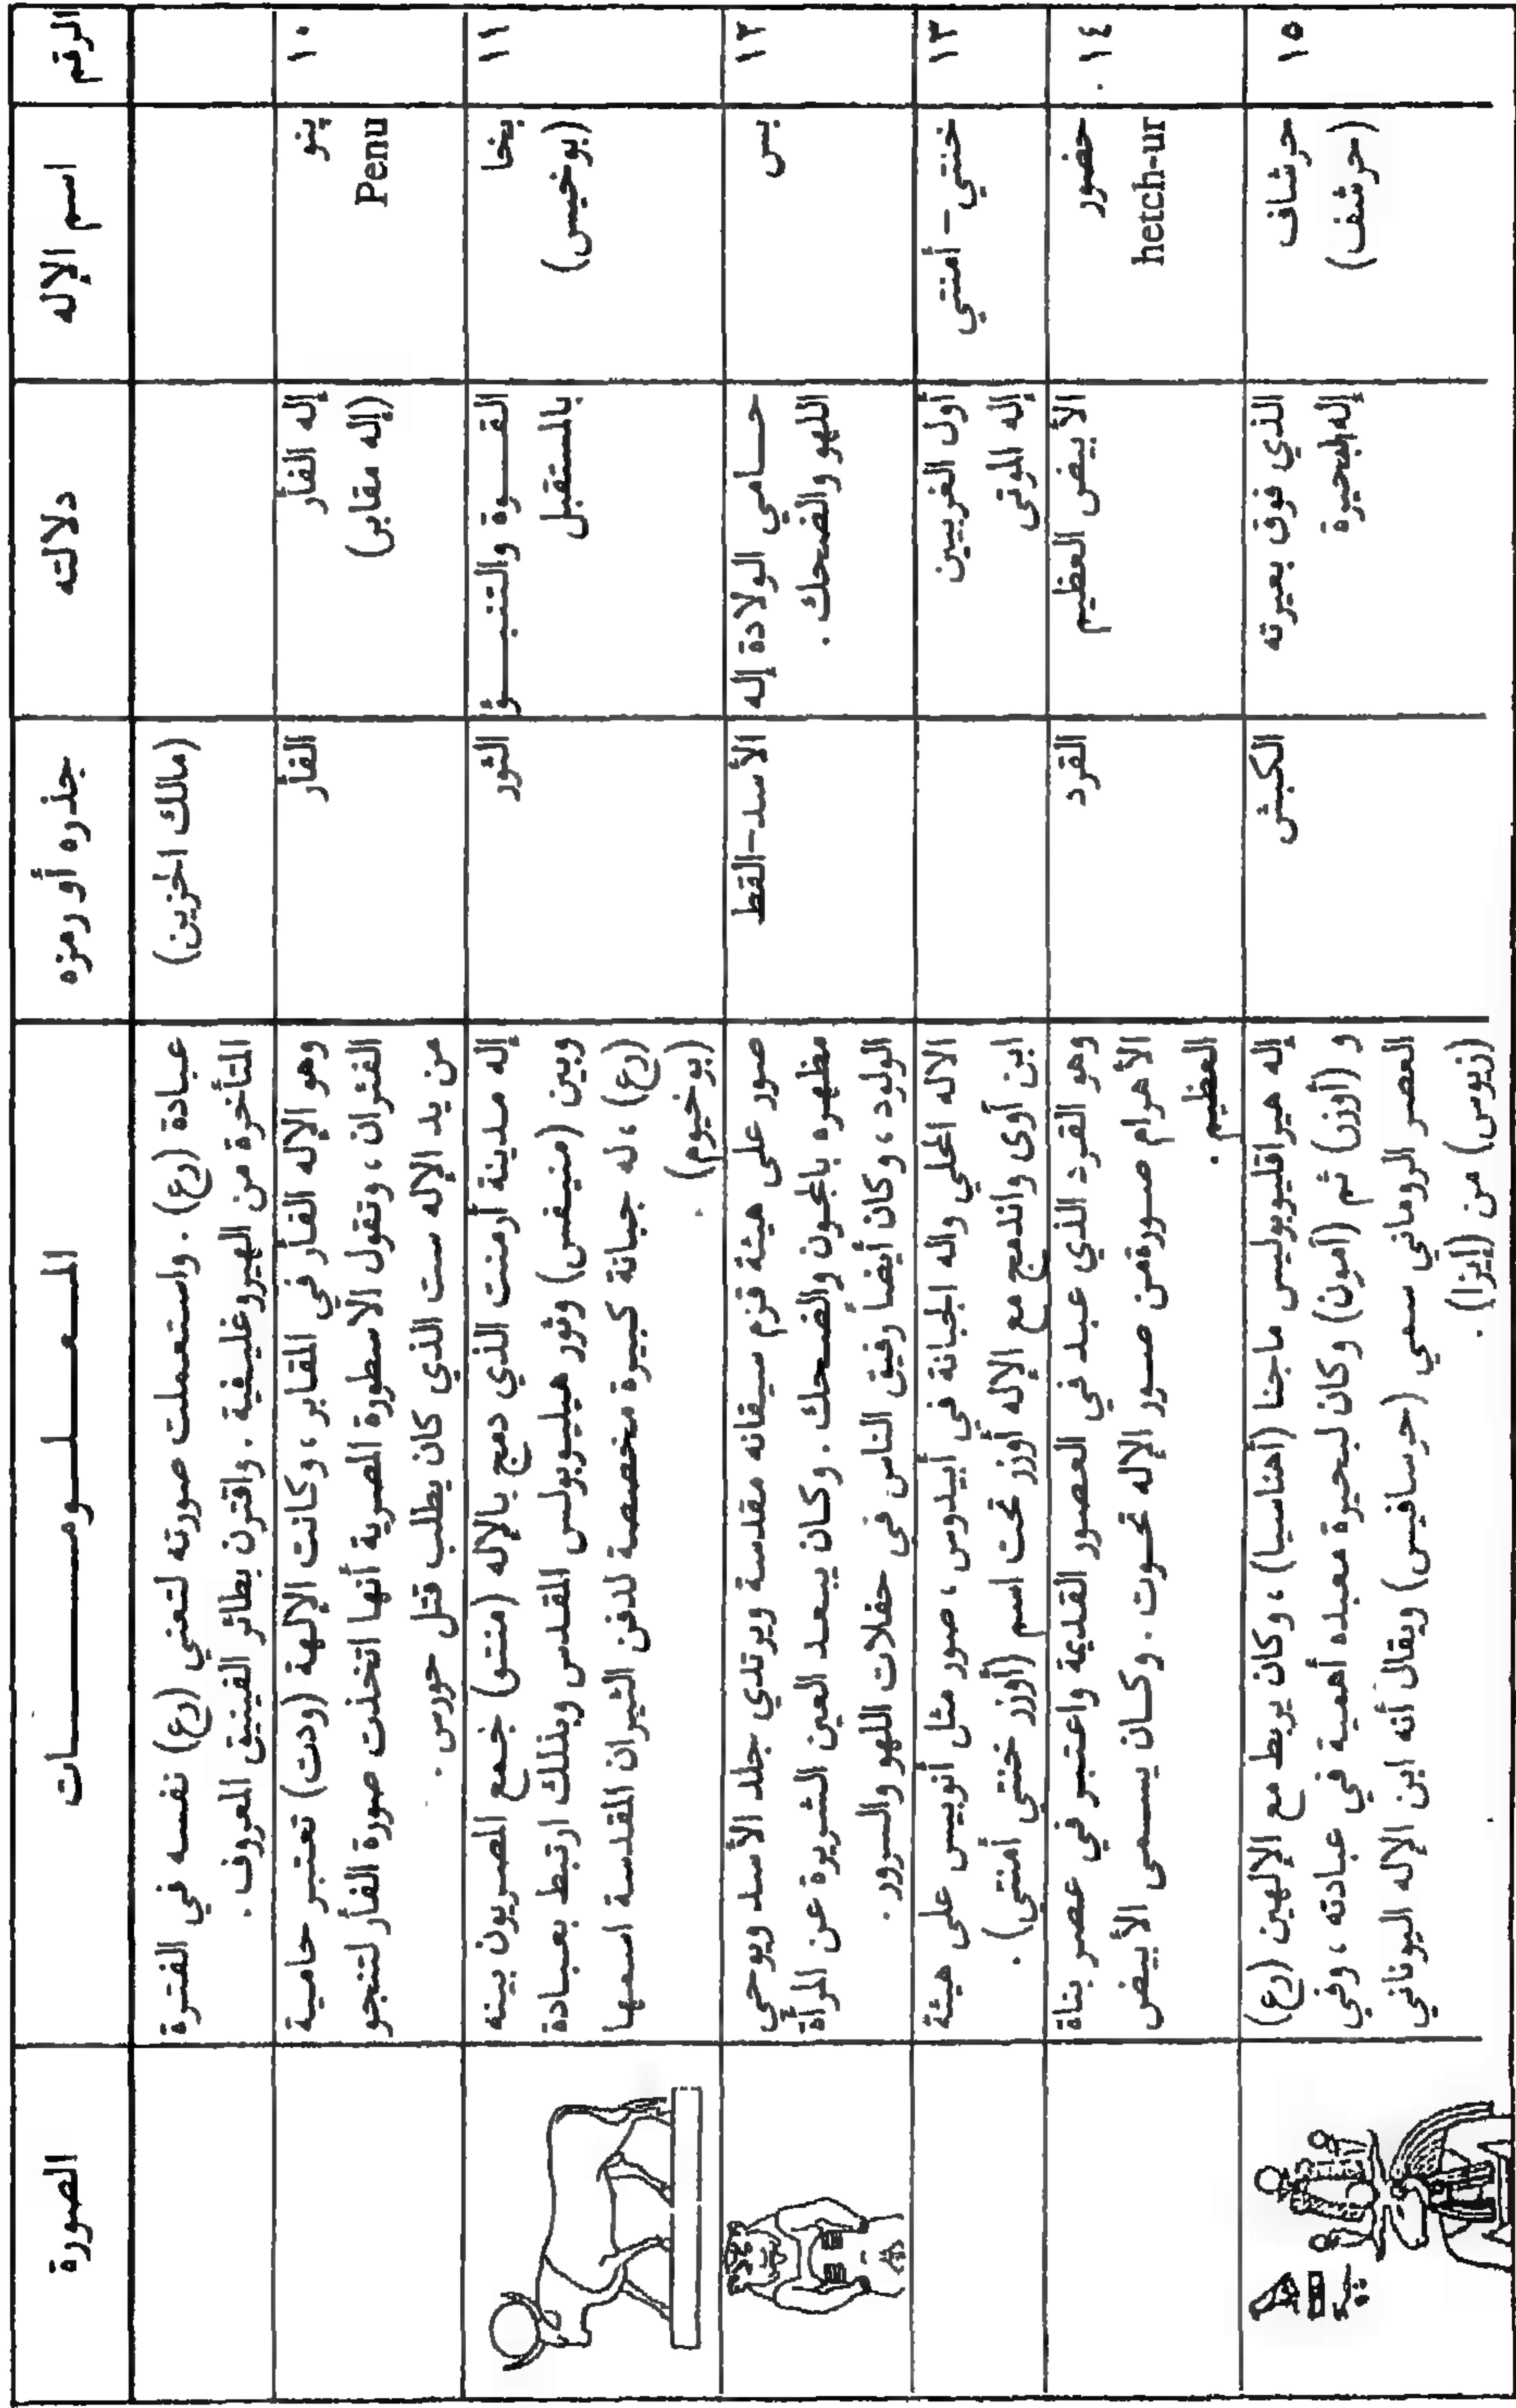 الرقم
اسم الإله
دلالته
جذره أو رمزه
المعـلـومـــــــات
الصورة
(مالك الحزين)
عبادة (رع). واستعملت صورته لتعني (رع) نفسه في الفترة
المتأخرة من الهيروغليفية. واقترن بطائر الفينيق المعروف.
١٠
پنو
Penu
إله الفأر
(إله مقابر)
الفأر
وهو الإله الفأر في المقابر، وكانت الإلهة (ودت) تعتبر حامية
الفئران، وتقول الاسطورة المصرية أنها اتخذت صورة الفأر لتنجو
من يد الإله ست الذي كان يطلب قتل حورس.
١١
بخا
(بوخيس)
القــوة والتنبــؤ
بالمستقبل
الثور
إله مدينة أرمنت الذي دمج بالإله (منتو) جمع المصريون بينه
وبين (منيفس) وثور هيليوبولس المقدس وبذلك ارتبط بعبادة
(رع)، له جبانة كبيرة مخصصة لدفن الثيران المقدسة اسمها
(بوخيوم).
١٢
بس
حــامي الولادة إله
اللهو والضحك.
الأسد-القط
صور على هيئة قزم سيقانه مقدسة ويرتدي جلد الأسد ويوحي
مظهره بالمجون والضحك. وكان يبعد العين الشريرة عن المرأة
الولود، وكان أيضاً رفيق الناس في حفلات اللهو والسرور.
١٣
خنتي - أمنتي
أول الغربيين
إله الموتى
الاله المحلي واله الجبانة في أبيدوس، صور مثل أنوبيس على هيئة
ابن آوى واندمج مع الإله أوزر تحت اسم (أوزر خنتي أمنتي).
١٤
حضور
hetch-ur
الأبيض العظيم
القرد
وهو القرد الذي عبد في العصور القديمة واعتبر في عصر بناة
الأهرام صورة من صور الإله تحوت. وكان يسمى الأبيض
العظيم.
١٥
حرشاف
(حرشف)
الذي فوق بعيرته
إله البحيرة
الكبش
إله هيراقليوبوليس ماجنا (أهناسيا)، وكان يربط مع الإلهين (رع)
و (أوزر) ثم (آمون) وكان لبحيرة معبده أهمية في عبادته، وفي
العصر الروماني سمي (حرسافيس) ويقال أنه ابن الإله اليوناني
(زيوس) من (إيزا).